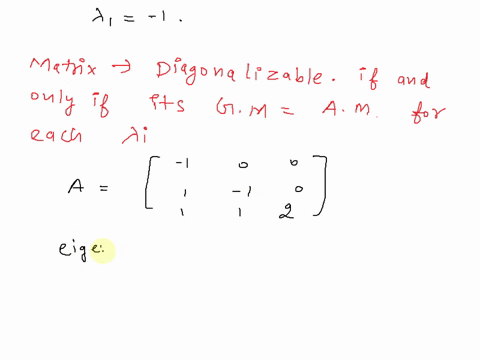 λ₁ = -1.
Matrix → Diagonalizable. if and
only if its G.M = A.M. for
each λi
-1 0 0
A = 1 -1 0
1 1 2
eige